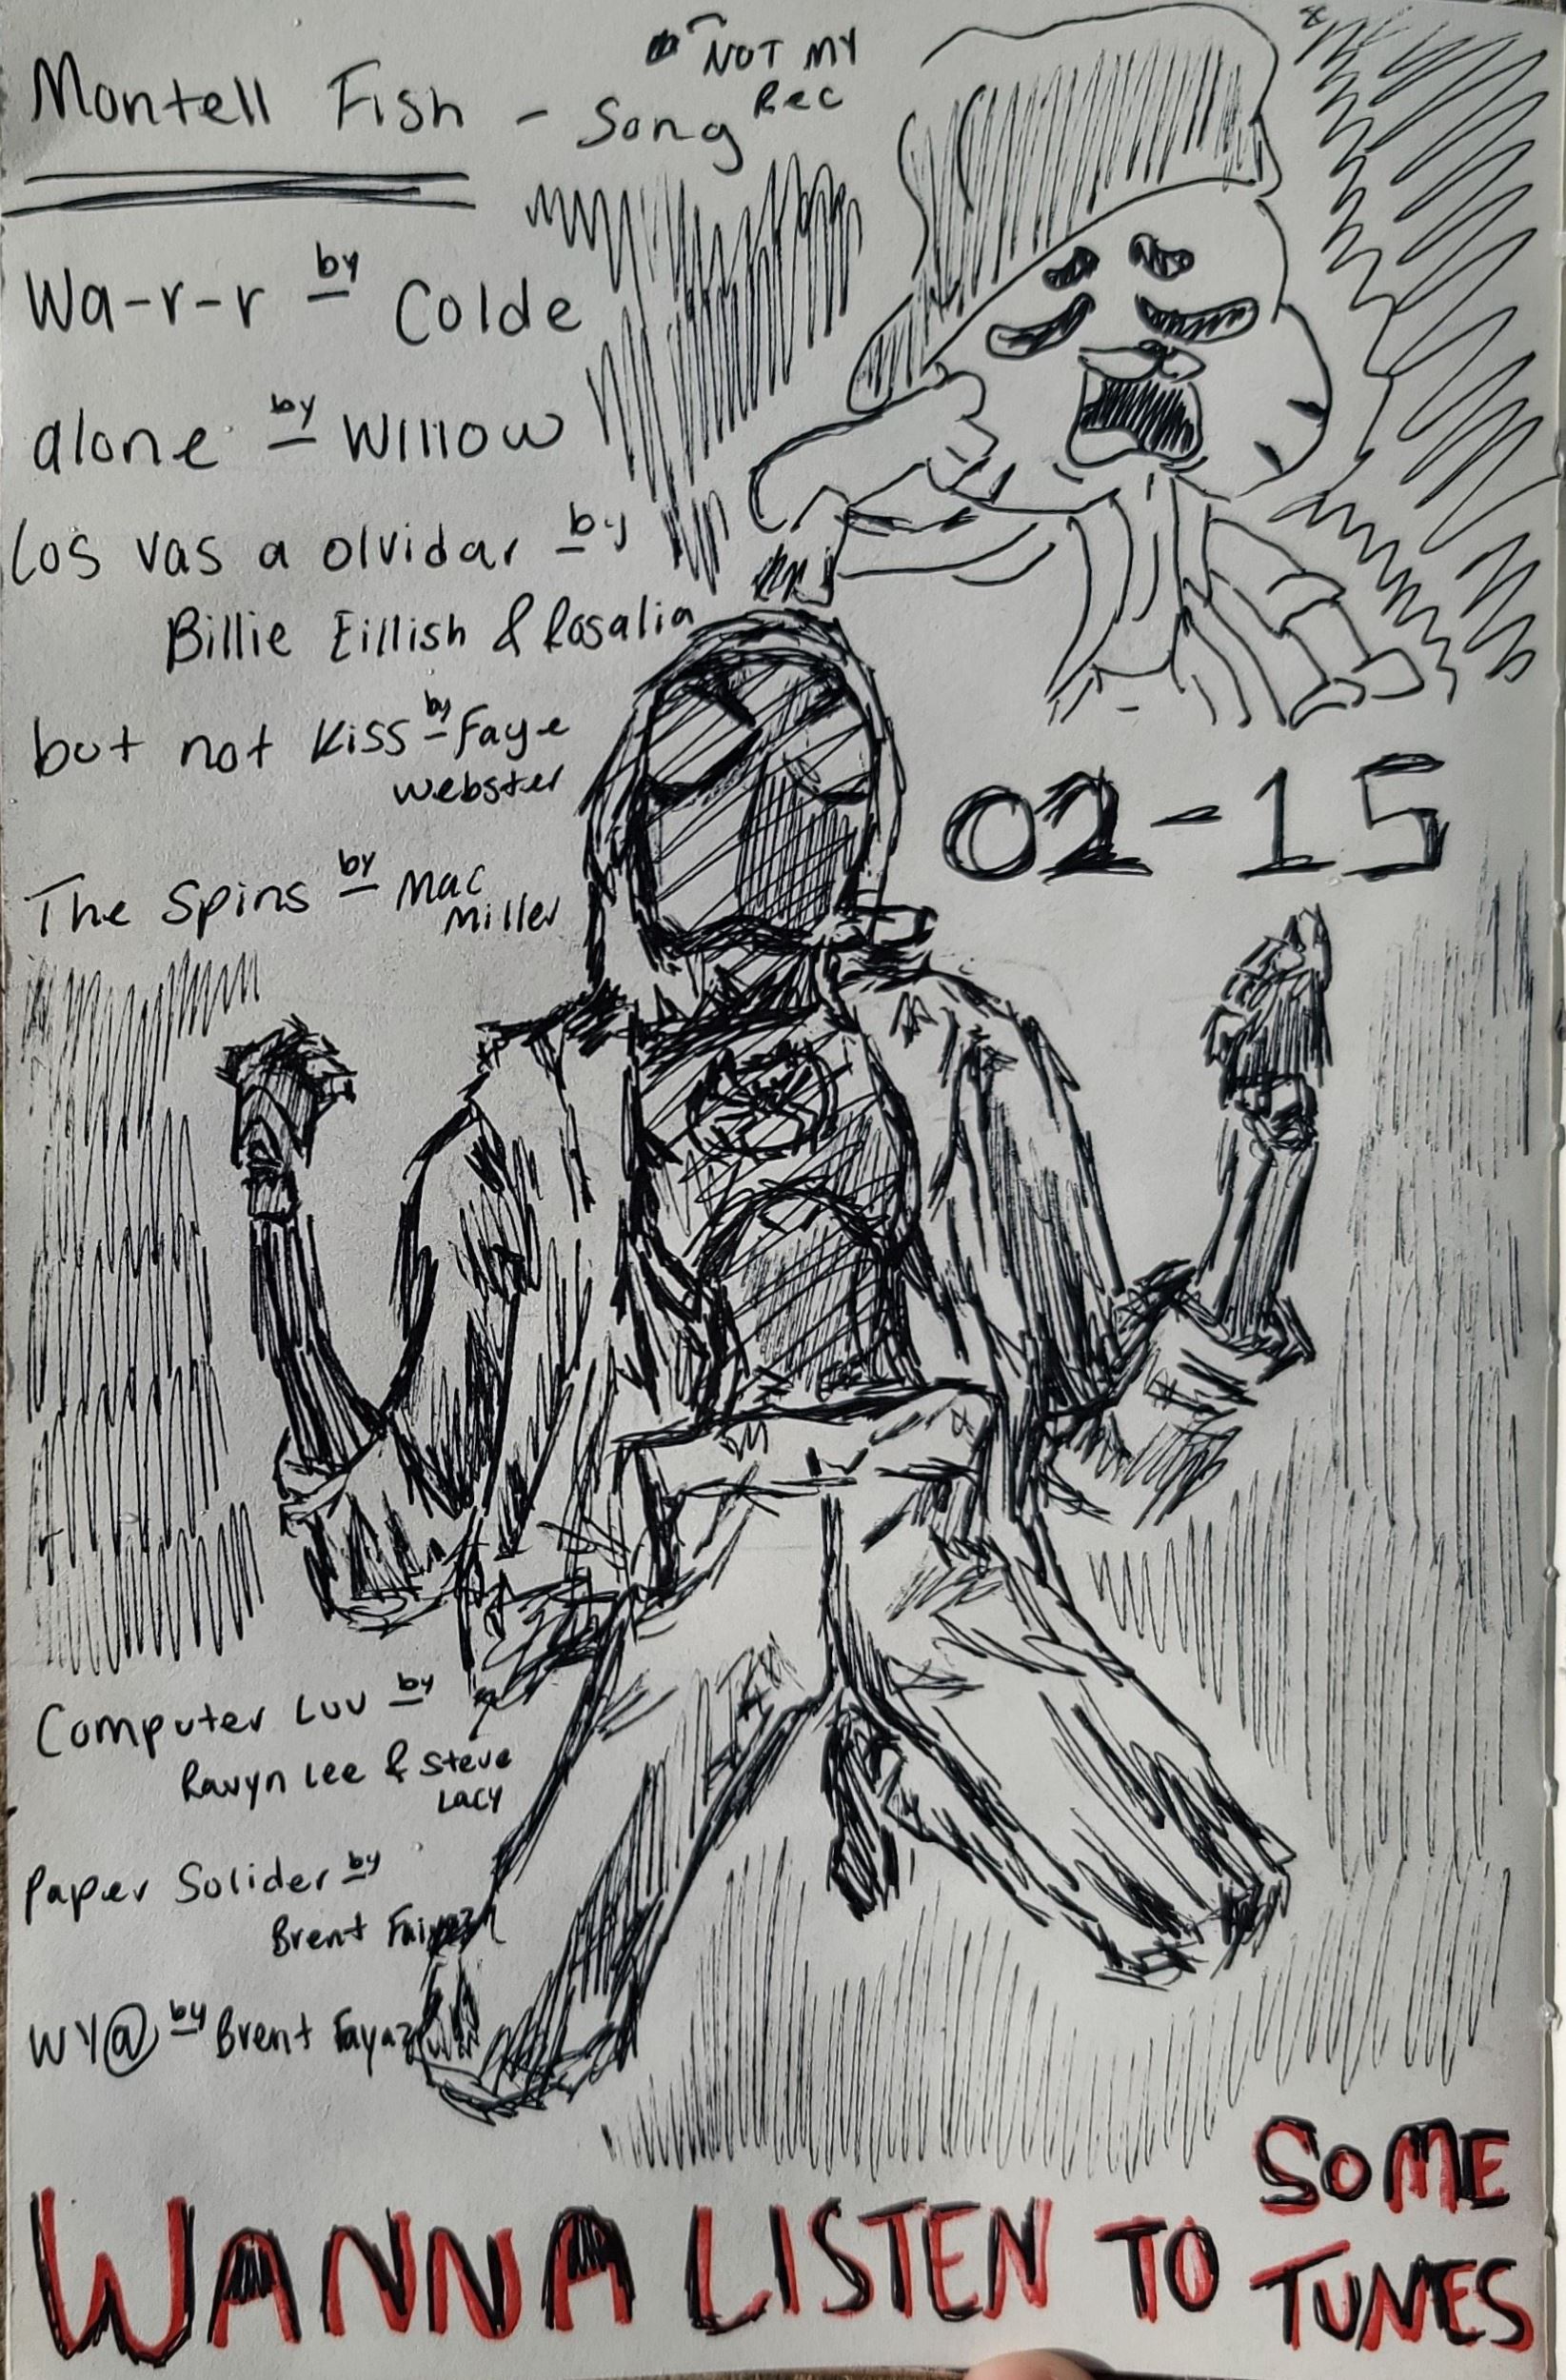 Montell Fish - Song
NOT MY
Rec
Wa-r-r by Colde
alone by Willow
Los vas a olvidar by
Billie Eillish & Rosalia
but not Kiss by Faye
Webster
The Spins by Mac
Miller
02-15
Computer Luv by
Ravyn Lee & Steve
Lacy
Paper Solider by
Brent Faiyaz
WY@ by Brent Fayaz
WANNA LISTEN TO SOME
TUNES